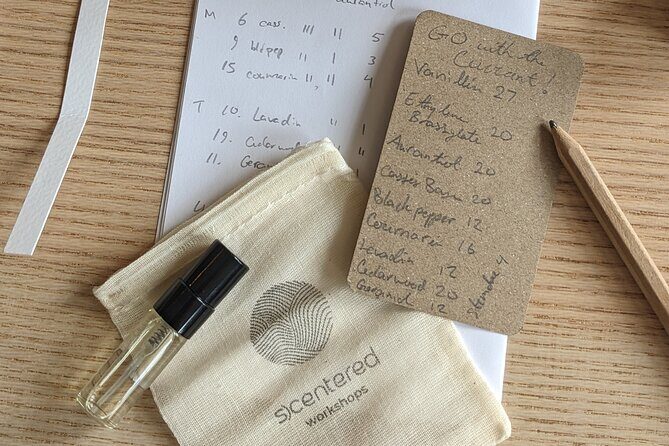 M 6 cass. III II 5
9 blkpep II 1 3
15 coumarin II, II 4
T 10. Lavadin II 1
19. Cedarw
11. Geran
GO with the
Currant!
Vanillin 27
Ethylene
Brassylate 20
Aurantiol 20
Cassis Base 20
Black pepper 12
Coumarin 16
Lavadin 12
Cedarwood 20
Geraniol 12
s)centered
workshops